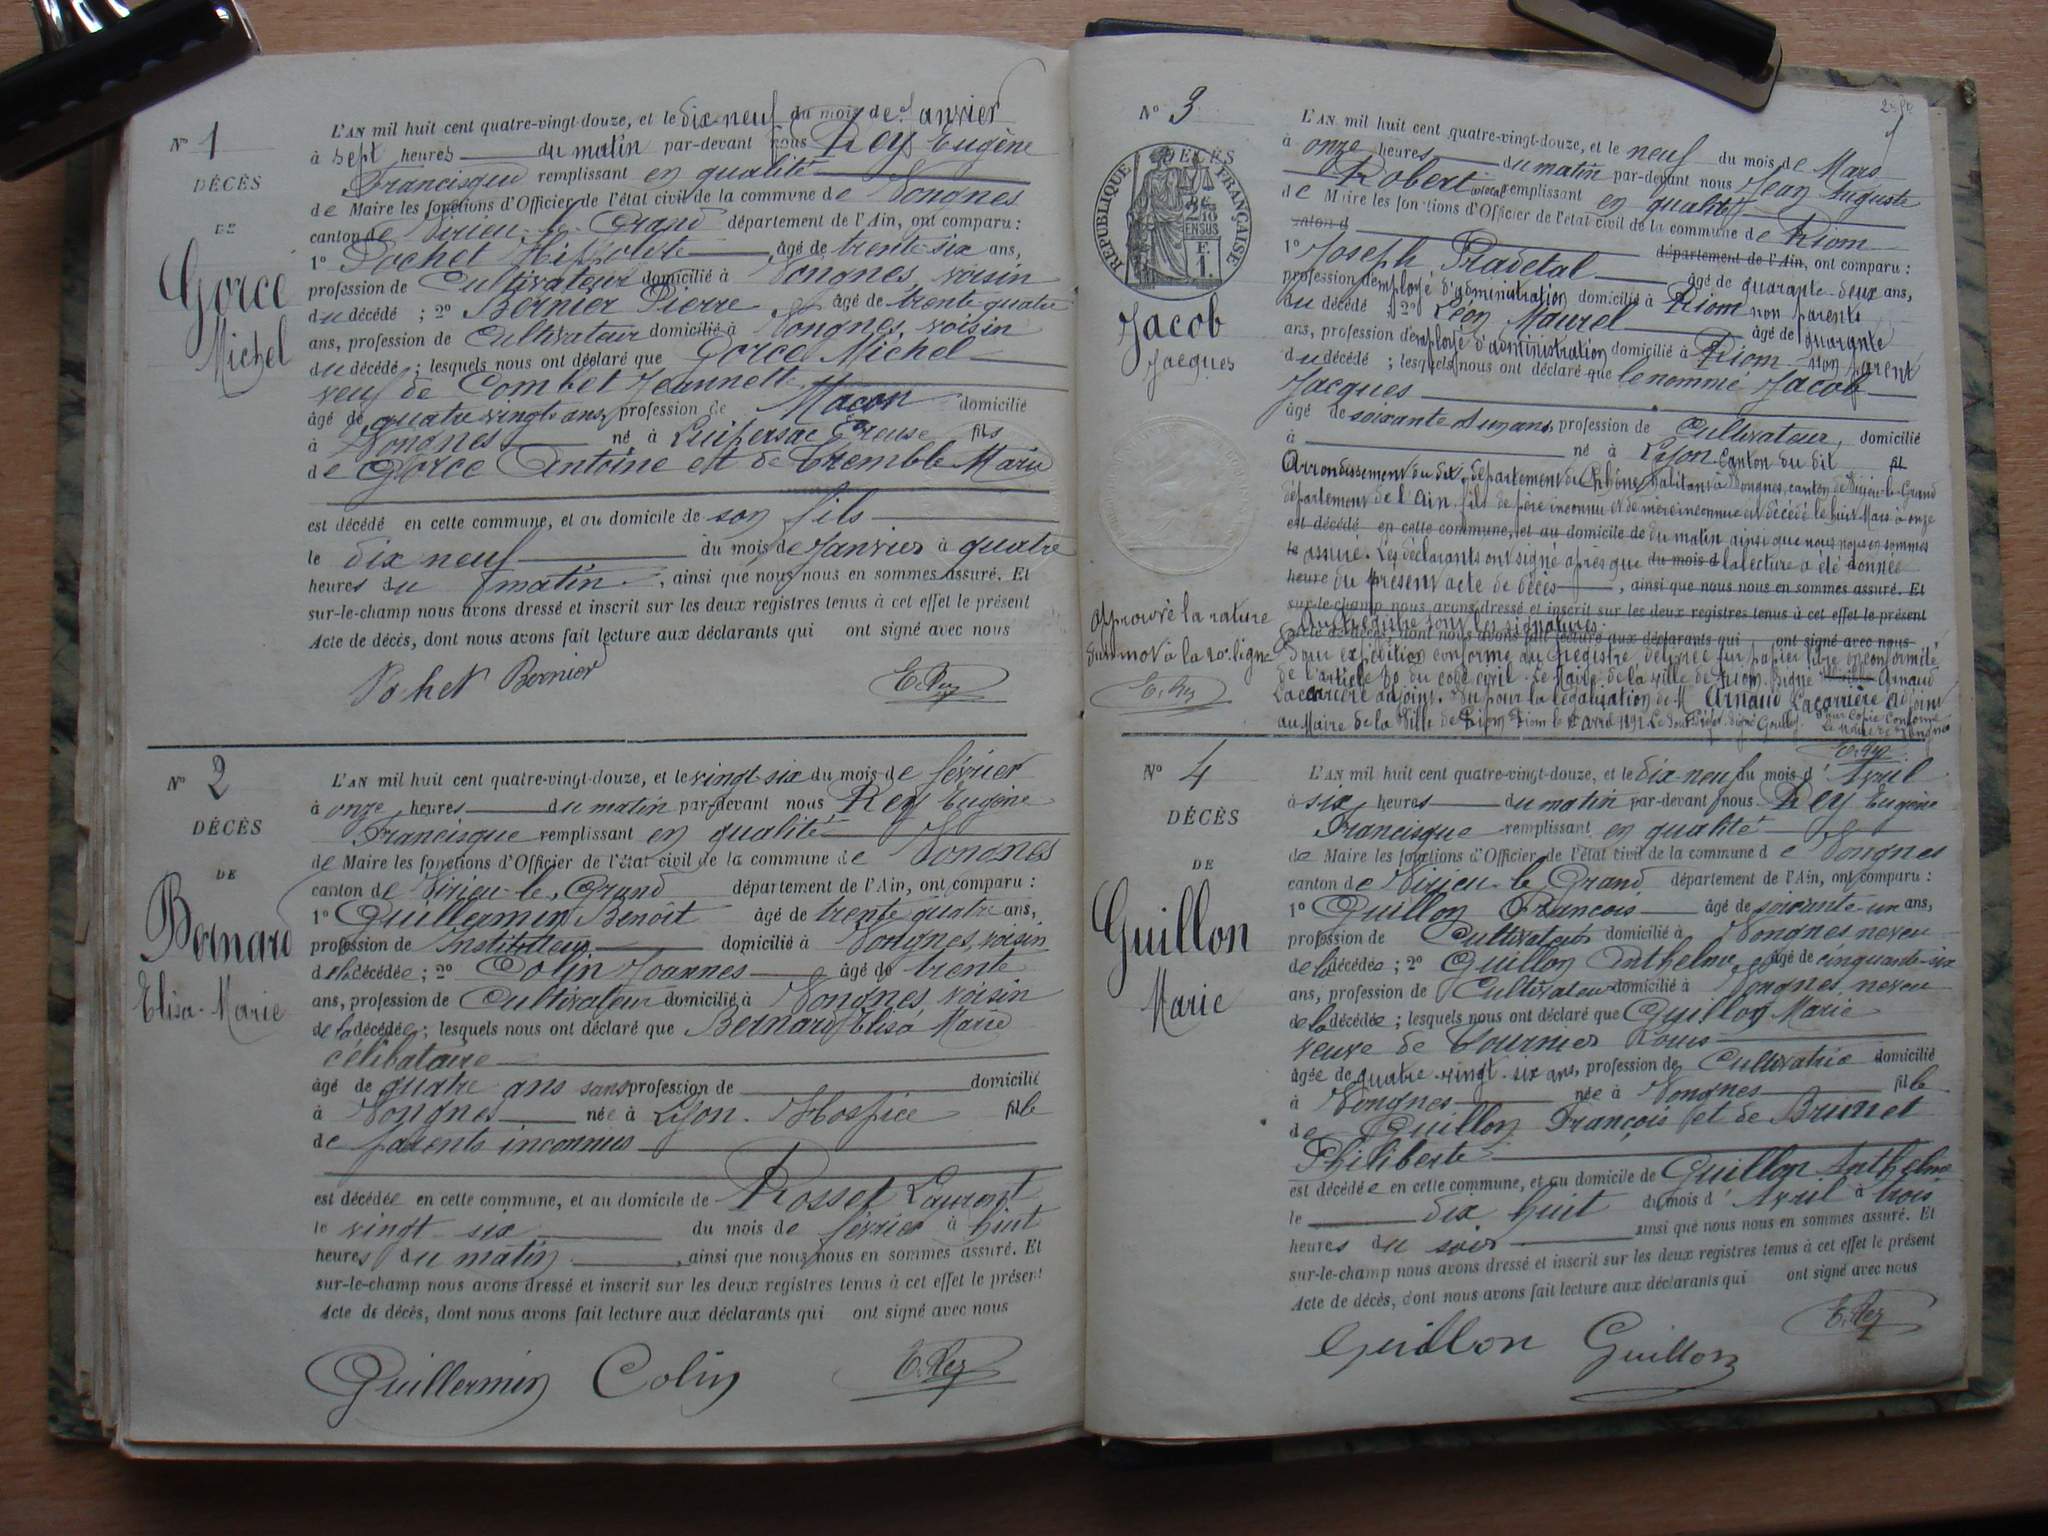 N° 1
DÉCÈS
DE
Gorce
Michel
L'AN mil huit cent quatre-vingt-douze, et le dix-neuf du mois de Janvier
à sept heures du matin par-devant nous Rey Eugène
Francisque remplissant en qualité
de Maire les fonctions d'Officier de l'état civil de la commune de Vongnes
canton de Virieu-le-Grand département de l'Ain, ont comparu :
1° Pochet Hippolite âgé de trente-six ans,
profession de Cultivateur domicilié à Vongnes, voisin
du décédé ; 2° Bernier Pierre âgé de trente quatre
ans, profession de Cultivateur domicilié à Vongnes, voisin
du décédé ; lesquels nous ont déclaré que Gorce Michel
veuf de Combet Jeannette
âgé de quatre vingts ans, profession de Maçon domicilié
à Vongnes né à Creuse fils
de Gorce Antoine et de Tremble Marie
est décédé en cette commune, et au domicile de son fils
le dix neuf du mois de Janvier à quatre
heures du matin, ainsi que nous nous en sommes assuré. Et
sur-le-champ nous avons dressé et inscrit sur les deux registres tenus à cet effet le présent
Acte de décès, dont nous avons fait lecture aux déclarants qui ont signé avec nous
Pochet Bernier E. Rey
N° 2
DÉCÈS
DE
Bernard
Elisa-Marie
L'AN mil huit cent quatre-vingt-douze, et le vingt-six du mois de février
à onze heures du matin par-devant nous Rey Eugène
Francisque remplissant en qualité
de Maire les fonctions d'Officier de l'état civil de la commune de Vongnes
canton de Virieu-le-Grand département de l'Ain, ont comparu :
1° Guillermin Benoît âgé de trente quatre ans,
profession de Instituteur domicilié à Vongnes, voisin
de la décédée ; 2° Colin Joannes âgé de trente
ans, profession de Cultivateur domicilié à Vongnes, voisin
de la décédée ; lesquels nous ont déclaré que Bernard Elisa Marie
célibataire
âgé de quatre ans sans profession de domicilié
à Vongnes née à Lyon. Hospice fille
de parents inconnus
est décédée en cette commune, et au domicile de Rosset Laurent
le vingt six du mois de février à huit
heures du matin, ainsi que nous nous en sommes assuré. Et
sur-le-champ nous avons dressé et inscrit sur les deux registres tenus à cet effet le présent
Acte de décès, dont nous avons fait lecture aux déclarants qui ont signé avec nous
Guillermin Colin E. Rey
N° 3
DÉCÈS
RÉPUBLIQUE FRANÇAISE
Jacob
Jacques
approuvé la rature
d'un mot à la 20e ligne
E. Rey
L'AN mil huit cent quatre-vingt-douze, et le neuf du mois de Mars
à onze heures du matin par-devant nous Jean Auguste
Robert remplissant en qualité
de Maire les fonctions d'Officier de l'état civil de la commune de Riom
canton d département de l'Ain, ont comparu :
1° Joseph Pradetal âgé de quarante-deux ans,
profession d'employé d'administration domicilié à Riom non parent
du décédé ; 2° Léon Maurel âgé de quarante
ans, profession d'employé d'administration domicilié à Riom non parent
du décédé ; lesquels nous ont déclaré que le nommé Jacob
Jacques
âgé de soixante ans, profession de Cultivateur, domicilié
à né à Lyon canton du dit fil
Arrondissement du dit, département du Rhône, habitant à Vongnes, canton de Virieu-le-Grand
département de l'Ain, fils de père inconnu et de mère inconnue est décédé le huit Mars à onze
est décédé en cette commune, et au domicile de du matin ainsi que nous nous en sommes
le assuré. Les déclarants ont signé après que du mois d la lecture a été donnée
heure du présent acte de décès, ainsi que nous nous en sommes assuré. Et
sur-le-champ nous avons dressé et inscrit sur les deux registres tenus à cet effet le présent
Au registre sont les signatures.
Acte de décès, dont nous avons fait lecture aux déclarants qui ont signé avec nous
Pour expédition conforme au registre délivrée sur papier libre en conformité
de l'article 80 du code civil. Le Maire de la ville de Riom. Signé Arnaud
Lacarrière adjoint. Vu pour la légalisation de M Arnaud Lacarrière adjoint
au Maire de la Ville de Riom Riom le avril 1892 Le Sous Préfet. Signé
Pour Copie Conforme
Le Maire de Vongnes
E. Rey
N° 4
DÉCÈS
DE
Guillon
Marie
L'AN mil huit cent quatre-vingt-douze, et le dix-neuf du mois d'Avril
à six heures du matin par-devant nous Rey Eugène
Francisque remplissant en qualité
de Maire les fonctions d'Officier de l'état civil de la commune de Vongnes
canton de Virieu-le-Grand département de l'Ain, ont comparu :
1° Guillon François âgé de soixante-un ans,
profession de Cultivateur domicilié à Vongnes neveu
de la décédée ; 2° Guillon Anthelme âgé de cinquante-six
ans, profession de Cultivateur domicilié à Vongnes neveu
de la décédée ; lesquels nous ont déclaré que Guillon Marie
veuve de Tournier Louis
âgée de quatre-vingt-six ans, profession de Cultivatrice domicilié
à Vongnes née à Vongnes fille
de Guillon François et de Brunet
Philiberte
est décédée en cette commune, et au domicile de Guillon Anthelme
le dix huit du mois d'Avril à trois
heures du soir ainsi que nous nous en sommes assuré. Et
sur-le-champ nous avons dressé et inscrit sur les deux registres tenus à cet effet le présent
Acte de décès, dont nous avons fait lecture aux déclarants qui ont signé avec nous
Guillon Guillon E. Rey